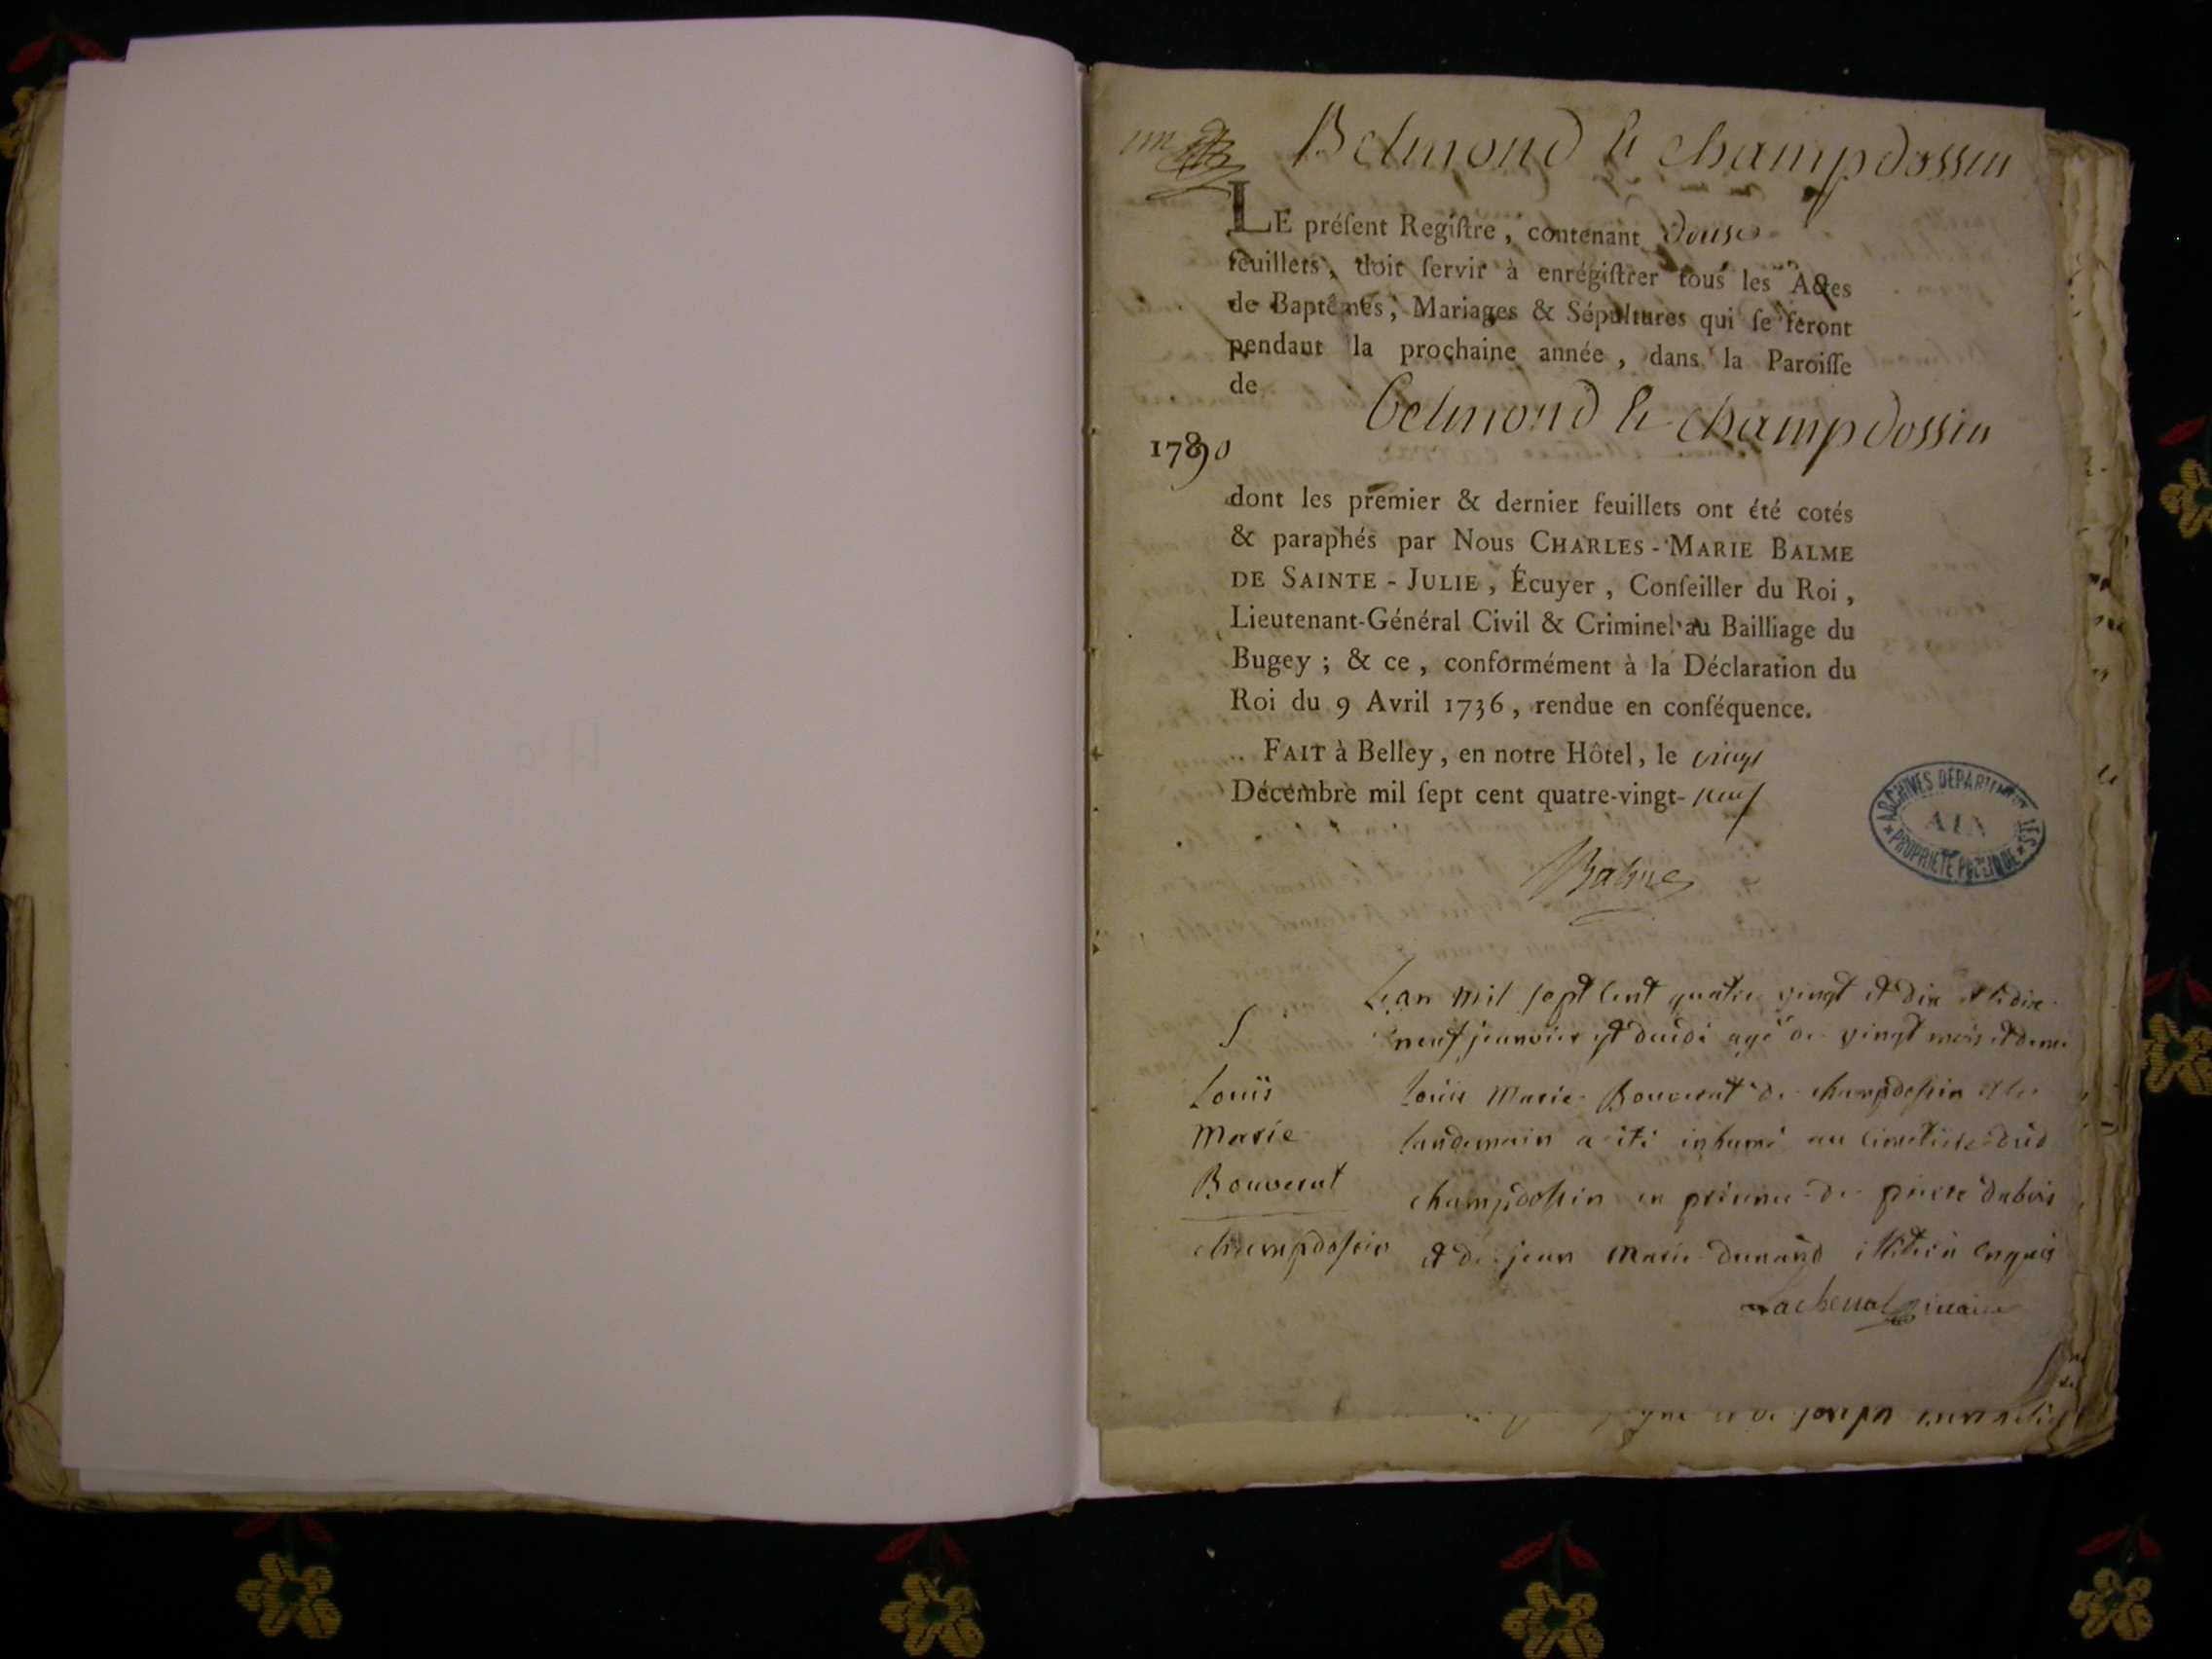 Belmond & champdossin
LE préſent Regiſtre, contenant douse
feuillets, doit ſervir à enrégiſtrer tous les Actes
de Baptêmes, Mariages & Sépultures qui ſe feront
pendant la prochaine année, dans la Paroiſſe
de
belmond & champdossin
1790
dont les premier & dernier feuillets ont été cotés
& paraphés par Nous CHARLES-MARIE BALME
DE SAINTE-JULIE, Écuyer, Conſeiller du Roi,
Lieutenant-Général Civil & Criminel au Bailliage du
Bugey; & ce, conformément à la Déclaration du
Roi du 9 Avril 1736, rendue en conſéquence.
FAIT à Belley, en notre Hôtel, le vingt
Décembre mil ſept cent quatre-vingt-neuf
Balme
ARCHIVES DÉPARTEMENTALES
AIN
PROPRIÉTÉ PUBLIQUE
S
Louis
Marie
Bouverat
champdossin
L'an mil sept cent quatre vingt et dix et le dix
neuf janvier est décédé agé de vingt mois et demi
Louis Marie Bouverat de champdossin et le
landemain a été inhumé au cimetiere dud
champdossin en présence de pierre dubois
et de jean Marie durand illitérés enquis
Lachenal vicaire
joseph